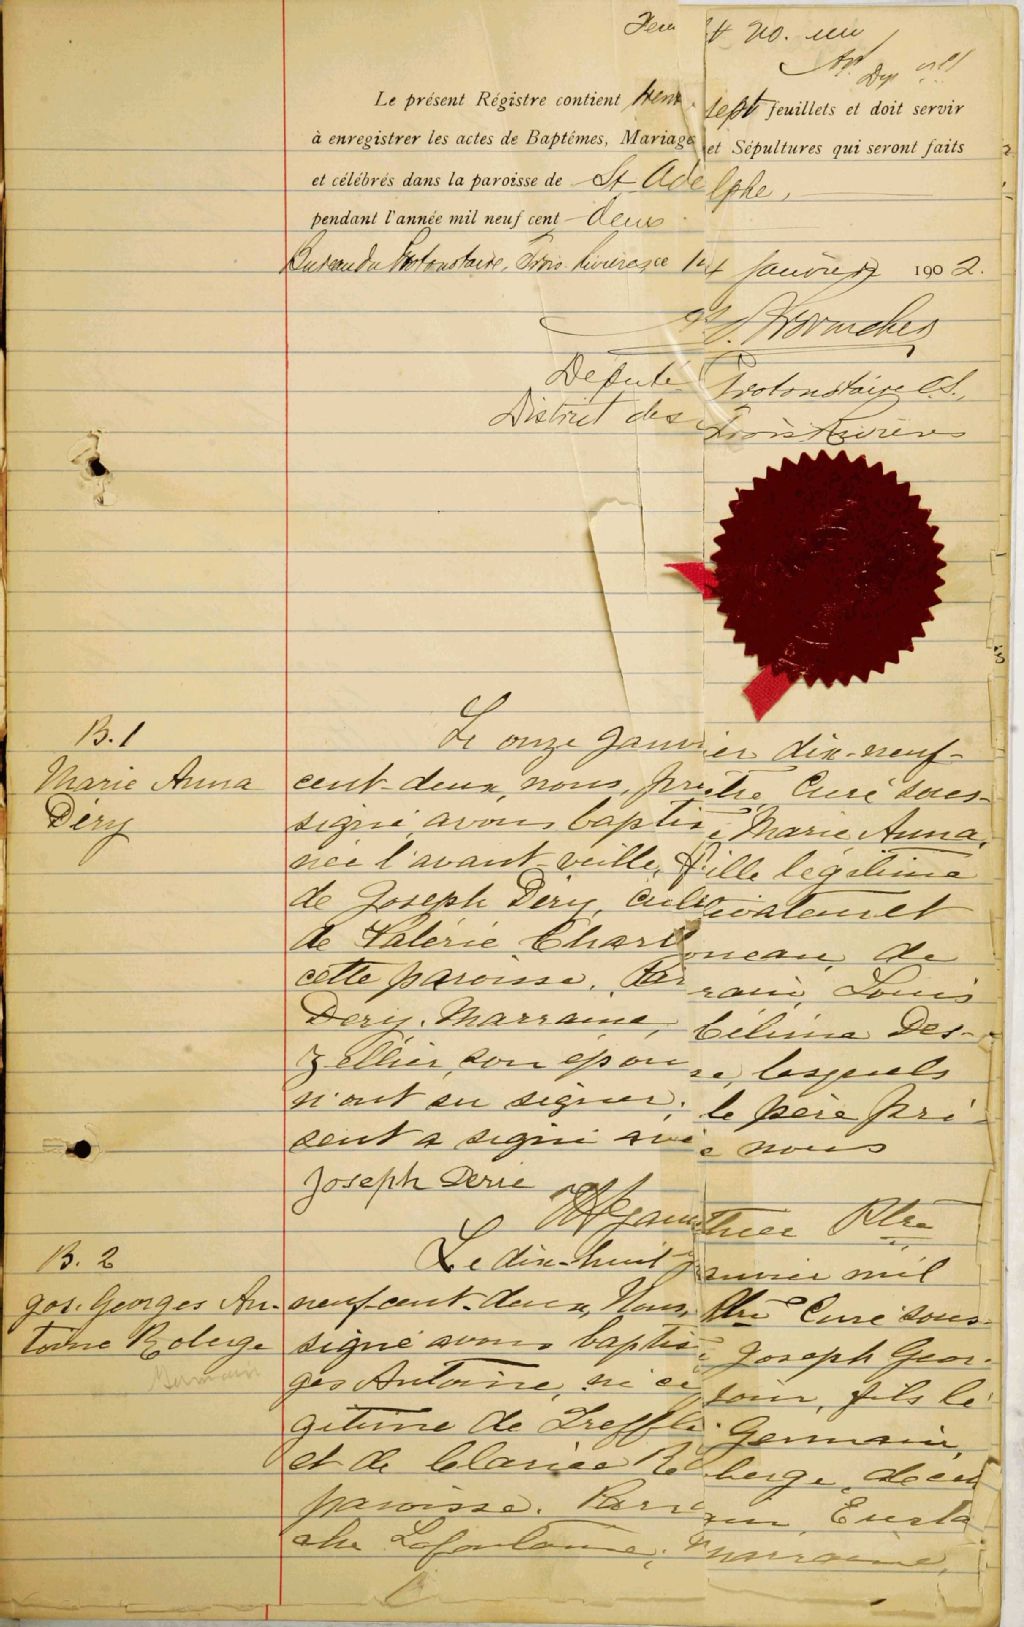 Feuillet no. un
Dep
Le présent Régistre contient trente sept feuillets et doit servir
à enregistrer les actes de Baptêmes, Mariage et Sépultures qui seront faits
et célébrés dans la paroisse de St Adelphe,
pendant l'année mil neuf cent deux
Bureau du Protonotaire, Trois-Rivières ce 1er Janvier 1902.
Député Protonotaire C.S.,
District des Trois Rivières
B. 1
Marie Anna
Déry
Le onze Janvier dix-neuf-
cent-deux, nous, prêtre, Curé sous-
signé, avons baptisé Marie Anna,
née l'avant-veille, fille légitime
de Joseph Déry, cultivateur et
de Valérie Charbonneau, de
cette paroisse. Parrain, Louis
Dery. Marraine, Célima Des-
zellier, son épouse, lesquels
n'ont su signer; le père pré-
sent a signé avec nous
Joseph Derie
Ptre
B. 2
Jos. Georges An-
toine Roberge
Germain
Le dix-huit Janvier mil
neuf-cent-deux, Nous, Ptre Curé sous-
signé avons baptisé Joseph Geor-
ges Antoine, né ce jour, fils lé-
gitime de Trefflé Germain,
et de Clarice Roberge, de cette
paroisse. Parrain, Eusta
che Lafontaine; Marraine,